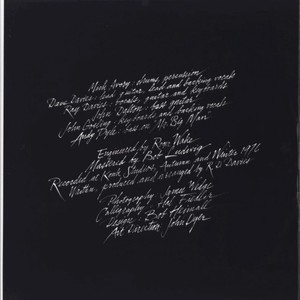 Mick Avory : drums, percussion
Dave Davies : lead guitar, lead and backing vocals
Ray Davies : vocals, guitar and keyboards
John Dalton : bass guitar
John Gosling : keyboards and backing vocals
Andy Pyle : bass on Mr Big Man
Engineered by Roger Wake
Mastered by Bob Ludwig
Recorded at Konk Studios, Autumn and Winter 1976
Written, produced and arranged by R D Davies
Photography : James Wedge
Calligraphy : Pat Fiddler
Design : Bob Heimall
Art Direction John Dyer